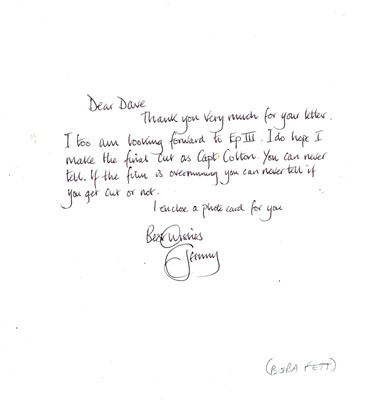 Dear Dave
Thank you very much for your letter.
I too am looking forward to Ep III. I do hope I
make the final cut as Capt Colton. You can never
tell. If the film is overrunning you can never tell if
you get cut or not.
I enclose a photo card for you
Best Wishes
Jeremy
(BOBA FETT)